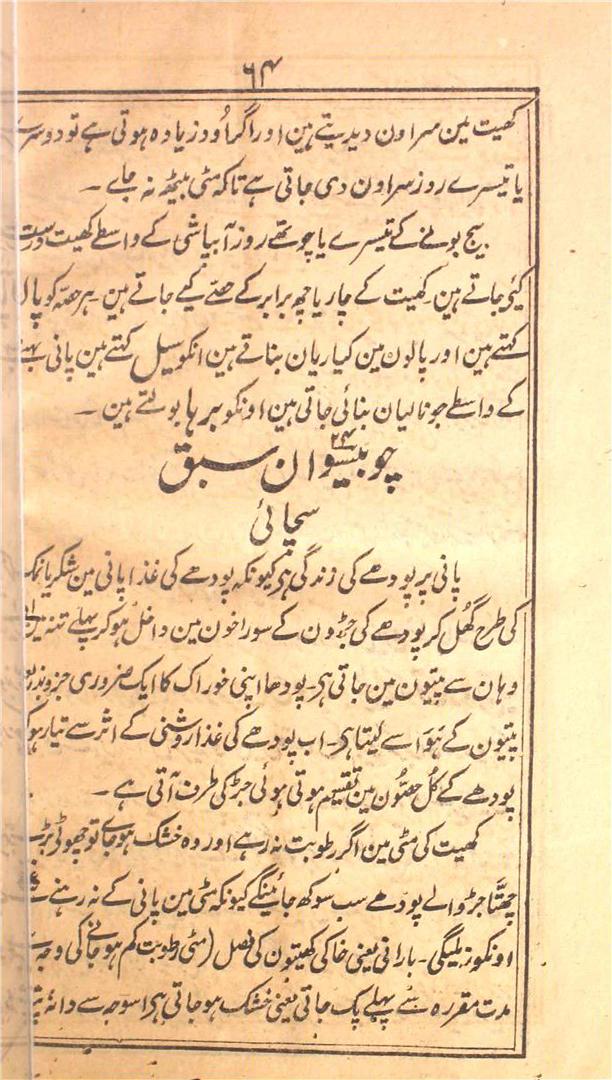 ۶۴
کھیت مین سراون دیدیتے ہین اور اگر اُود زیادہ ہوتی ہے تو دوسرے
یا تیسرے روز سراون دی جاتی ہے تاکہ مٹی بیٹھ نہ جاے ۔
بیج بونے کے تیسرے یا چوتھے روز آبپاشی کے واسطے کھیت درست
کئی جاتے ہین۔ کھیت کے چار یا چھ برابر کے حصّے کیے جاتے ہین۔ ہر حصّہ کو پال
کہتے ہین اور پالون مین کیاریان بناتے ہین انکو سیل کہتے ہین پانی
کے واسطے جو نالیان بنائی جاتی ہین اونکو برہا بولتے ہین ۔
چوبیسوان سبق ۲۴
سچائی
پانی پر پودھے کی زندگی ہی کیونکہ پودھے کی غذا پانی مین شکر یا نمک
کی طرح گھُل کر پودھے کی جڑون کے سوراخون مین داخل ہو کر پہلے تنہ مین
وہان سے پتیون مین جاتی ہی۔ پودھا اپنی خوراک کا ایک ضروری جزو
پتیون کے ہَوَا سے لیتا ہی۔ اب پودھے کی غذا روشنی کے اثر سے تیار ہو کر
پودھے کے کُل حصّون مین تقسیم ہوتی ہوئی جڑ کی طرف آتی ہے ۔
کھیت کی مٹی مین اگر رطوبت نہ رہے اور وہ خشک ہو جاے تو چھوٹی
چھتّا جڑ والے پودھے سب سوکھ جائینگے کیونکہ مٹی مین پانی کے نہ رہنے سے
اونکو نہ ملیگی۔ بارانی یعنی خاکی کھیتون کی فصل (مٹی رطوبت کم ہو جانے کی وجہ سے
مدت مقررہ سے پہلے پک جاتی یعنی خشک ہو جاتی ہی اسوجہ سے دانہ